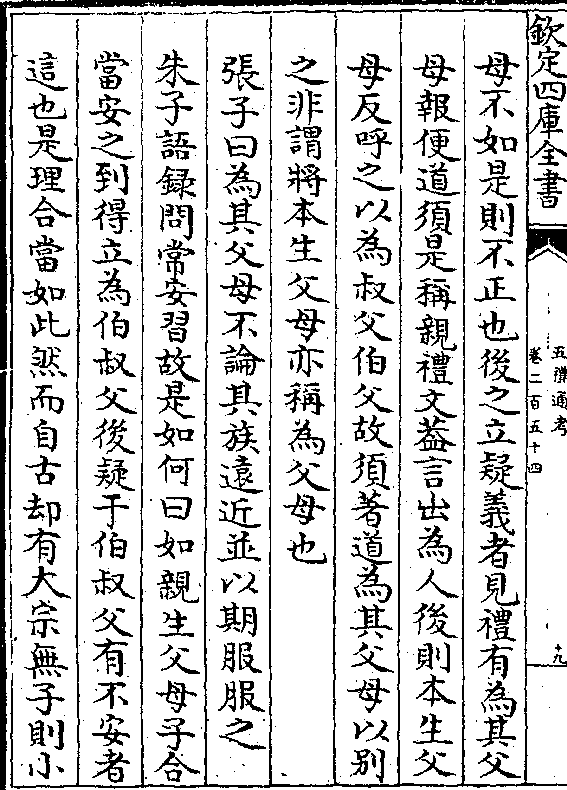 欽定四庫全書
五禮通考
卷二百五十四
十九
母不如是則不正也後之立疑義者見禮有為其父
母報便道須是稱親禮文葢言出為人後則本生父
母反呼之以為叔父伯父故須著道為其父母以别
之非謂將本生父母亦稱為父母也
張子曰為其父母不論其族遠近並以期服服之
朱子語録問常安習故是如何曰如親生父母子合
當安之到得立為伯叔父後疑于伯叔父有不安者
這也是理合當如此然而自古却有大宗無子則小